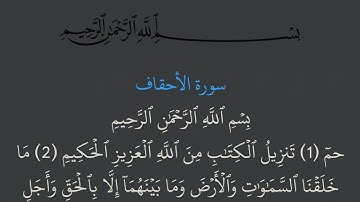 بسم الله الرحمن الرحيم
سورة الأحقاف
بِسْمِ ٱللَّهِ ٱلرَّحْمَٰنِ ٱلرَّحِيمِ
حمٓ (1) تَنزِيلُ ٱلْكِتَٰبِ مِنَ ٱللَّهِ ٱلْعَزِيزِ ٱلْحَكِيمِ (2) مَا
خَلَقْنَا ٱلسَّمَٰوَٰتِ وَٱلْأَرْضَ وَمَا بَيْنَهُمَآ إِلَّا بِٱلْحَقِّ وَأَجَلٍ